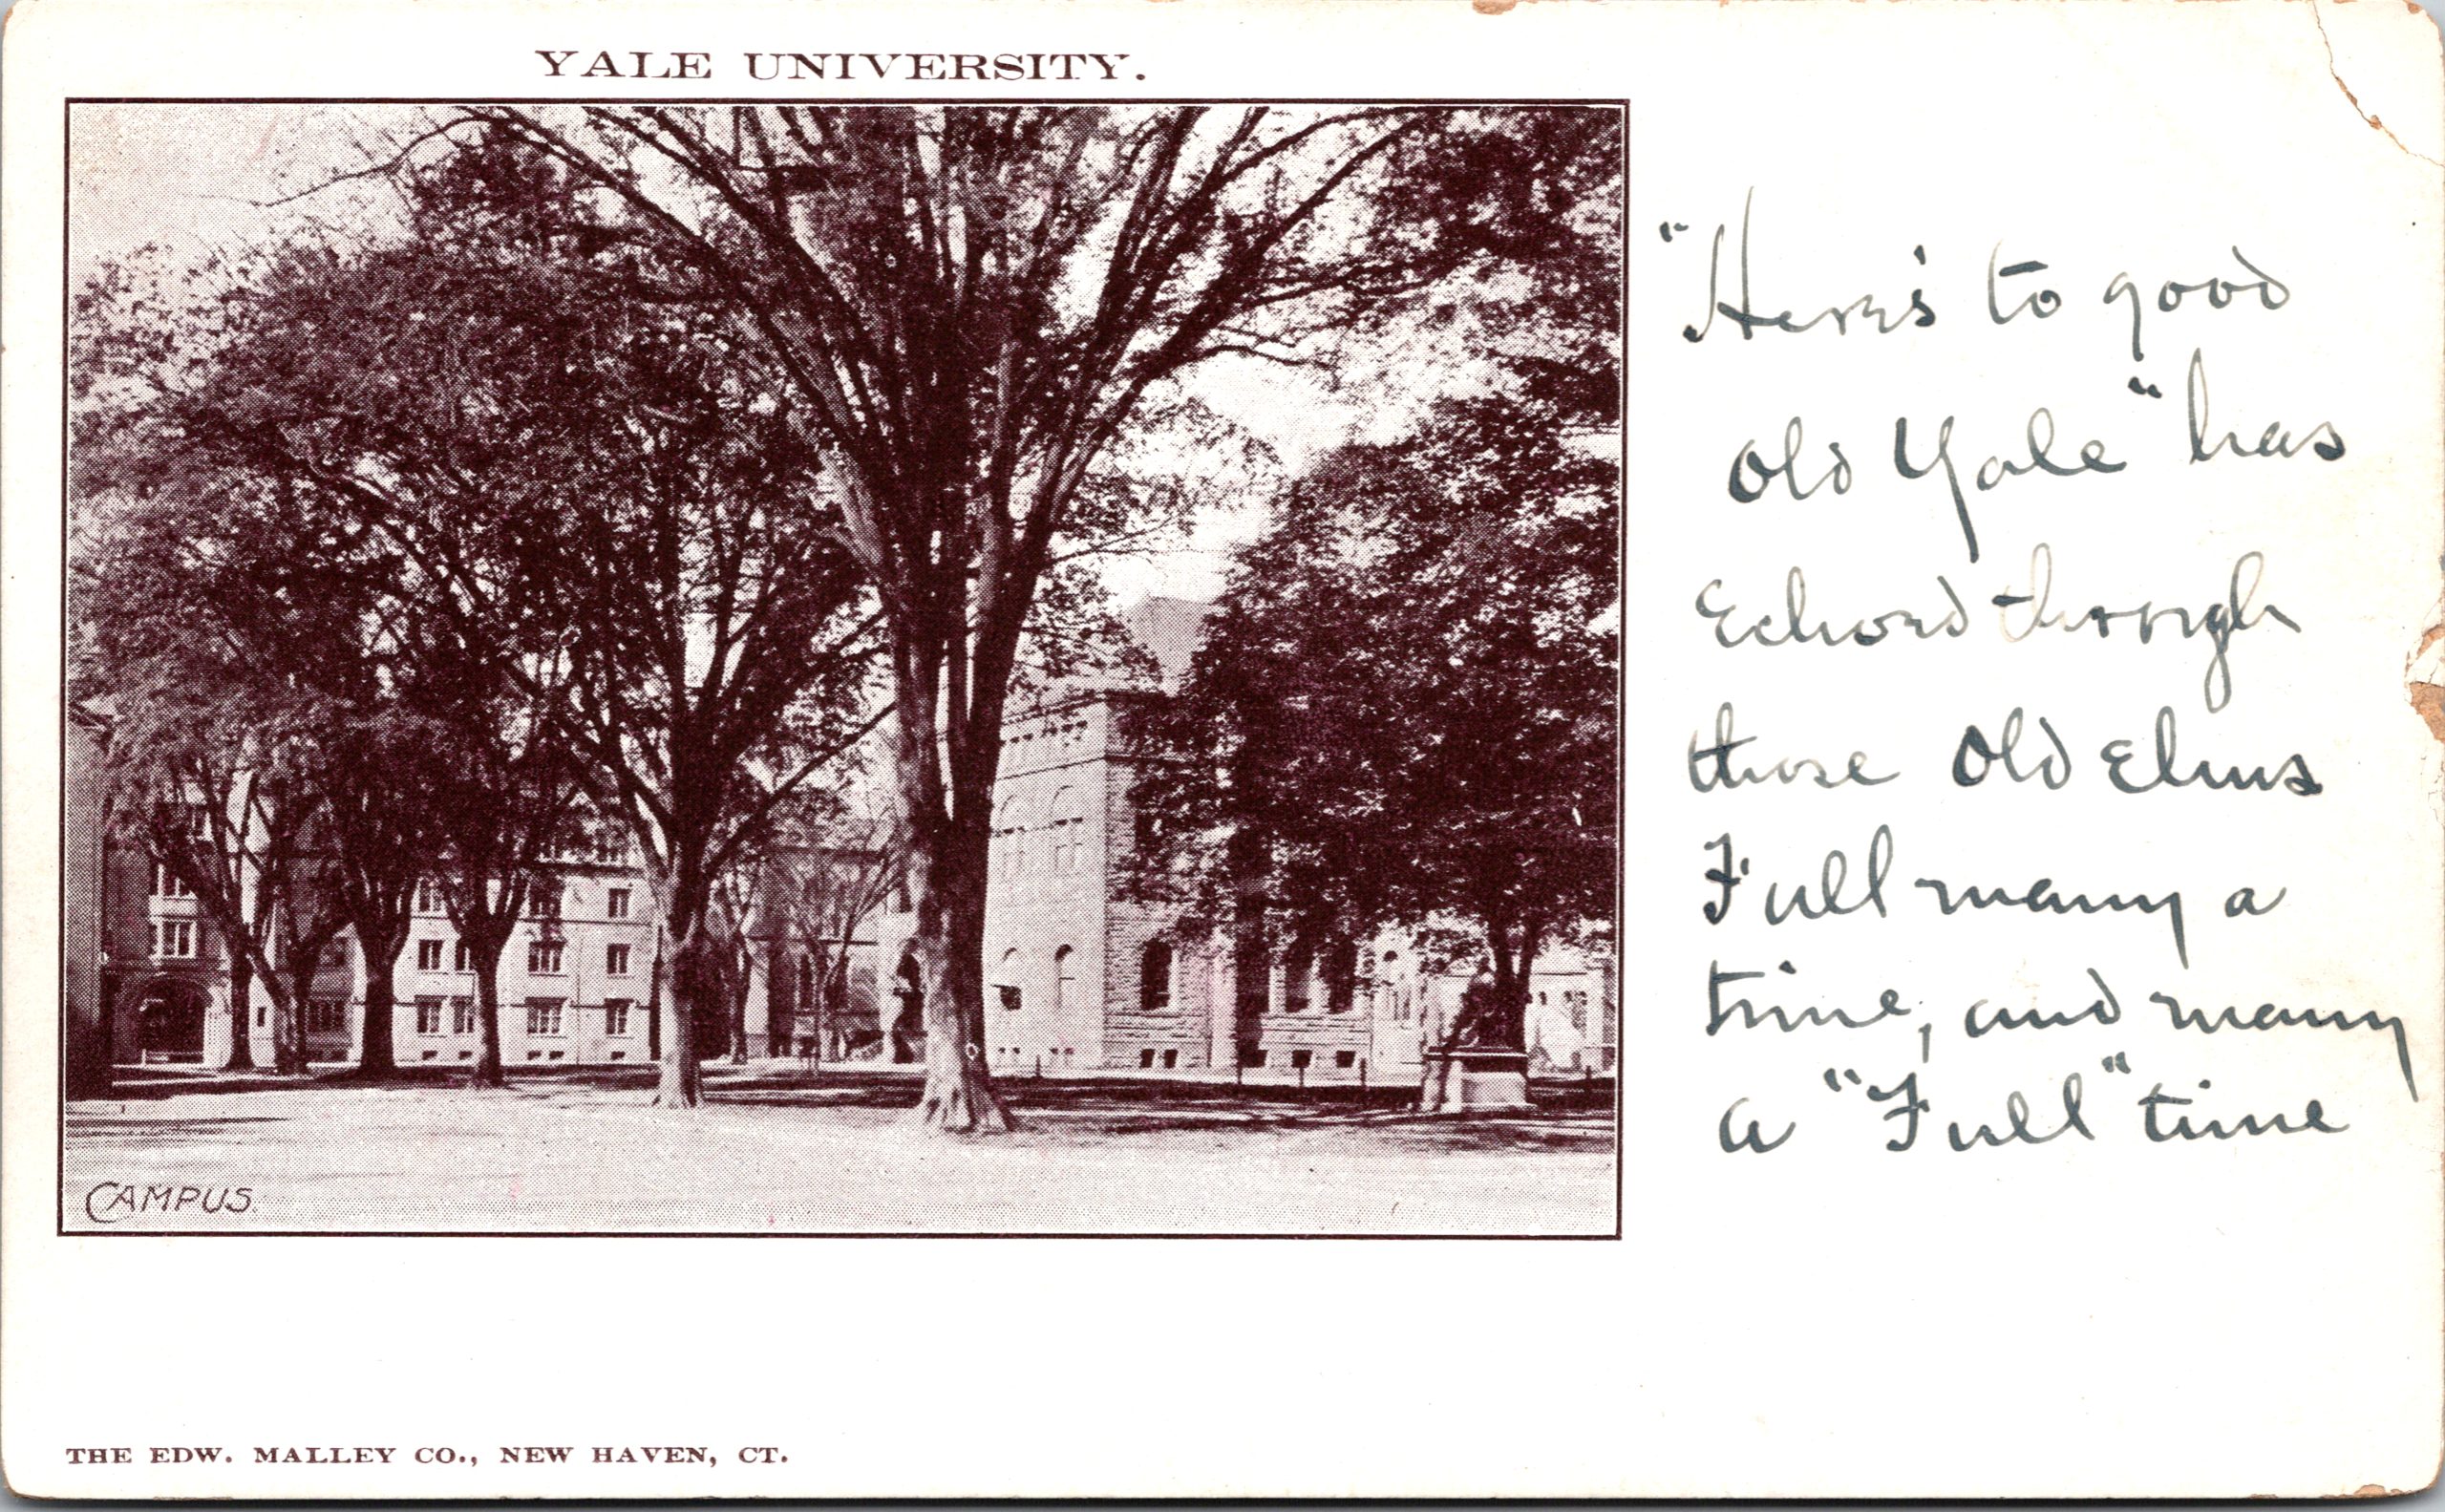 YALE UNIVERSITY.
"Here's to good
old Yale" has
Echoed through
those Old Elms
Full many a
time, and many
a "Full" time
CAMPUS.
THE EDW. MALLEY CO., NEW HAVEN, CT.